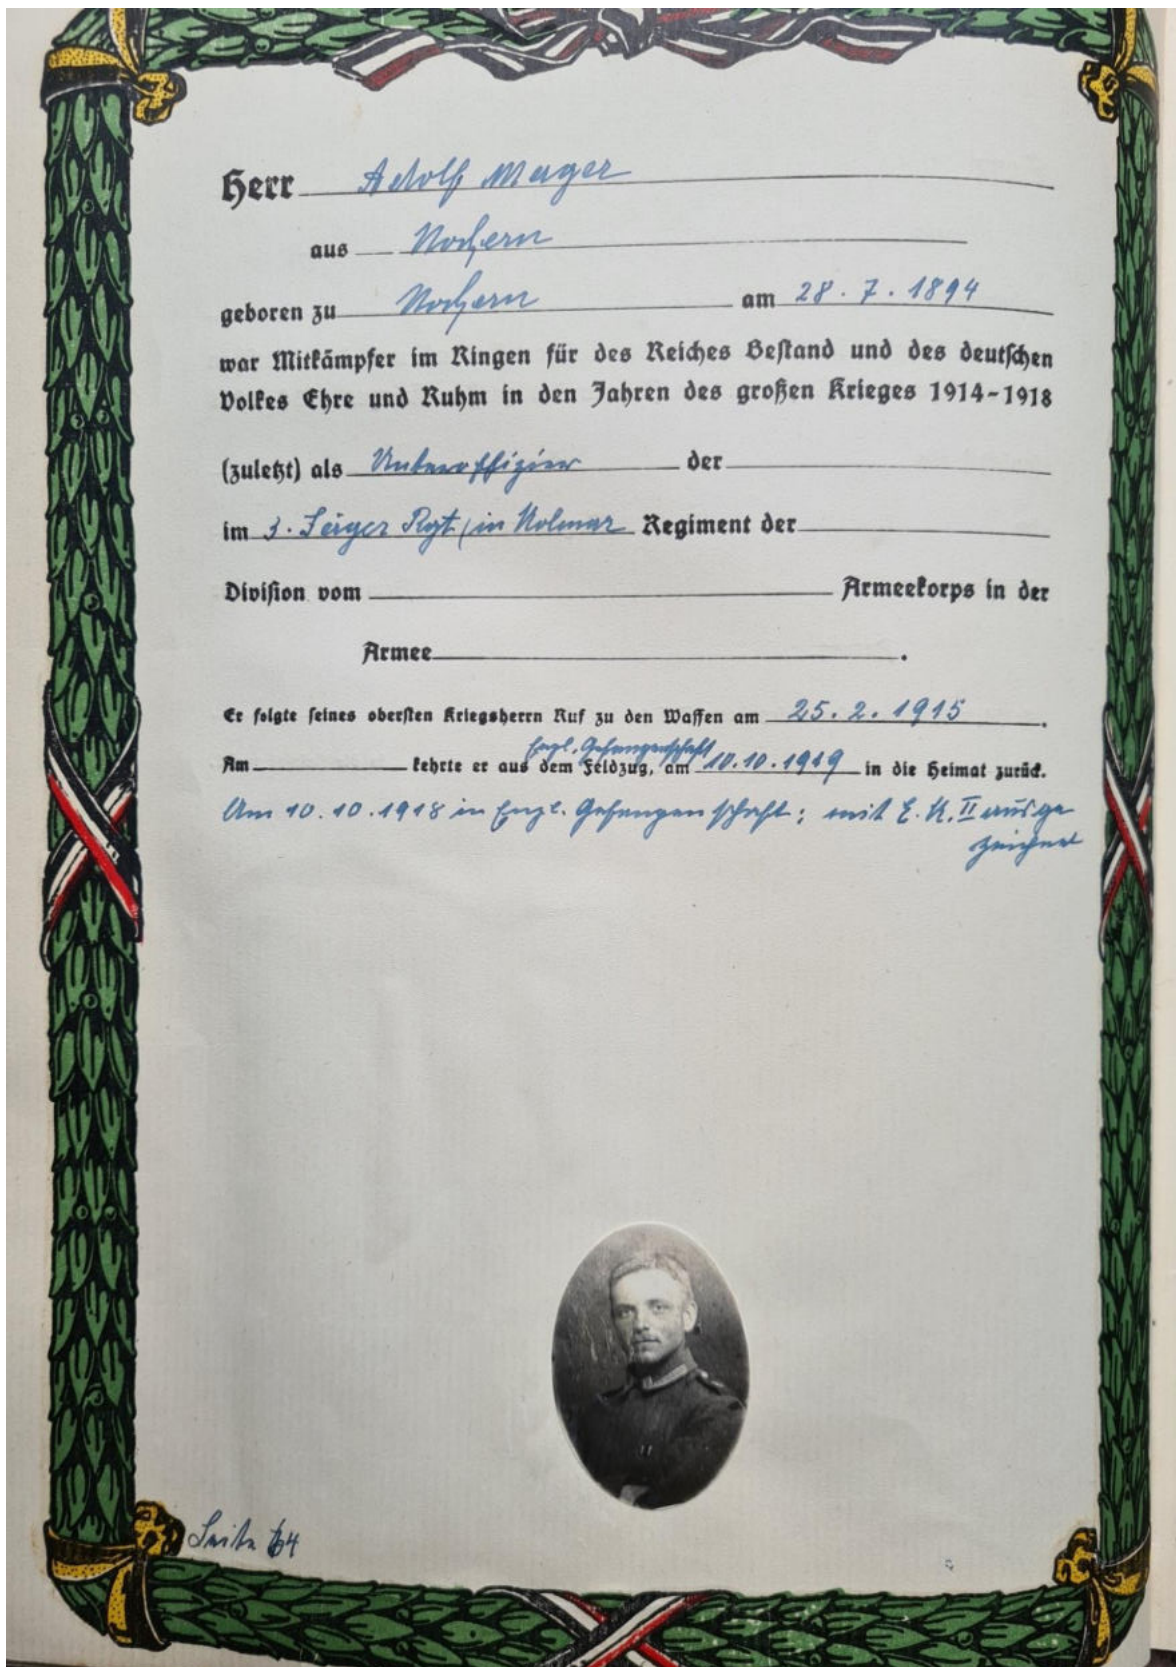 Herr Adolf Mager
aus Nochern
geboren zu Nochern am 28.7.1894
war Mitkämpfer im Ringen für des Reiches Bestand und des deutschen
Volkes Ehre und Ruhm in den Jahren des großen Krieges 1914-1918
(zuletzt) als Unteroffizier der
im 3. Jäger Rgt, in Kolmar Regiment der
Division vom Armeekorps in der
Armee .
Er folgte seines obersten Kriegsherrn Ruf zu den Waffen am 25.2.1915 .
Engl. Gefangenschaft
Am kehrte er aus dem Feldzug, am 10.10.1919 in die Heimat zurück.
Am 10.10.1918 in Engl. Gefangenschaft; mit E.K. II ausge
zeichnet
Seite 64